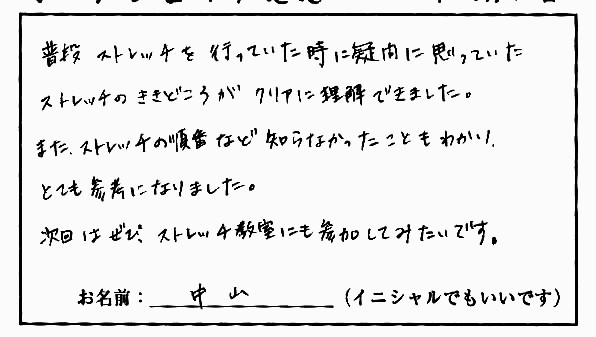 普段 ストレッチを 行っていた時に疑問に思っていた
ストレッチの ききどころが クリアに理解できました。
また、ストレッチの順番など 知らなかったこともわかり、
とても参考になりました。
次回はぜひ、ストレッチ教室にも参加してみたいです。
お名前：中山（イニシャルでもいいです）